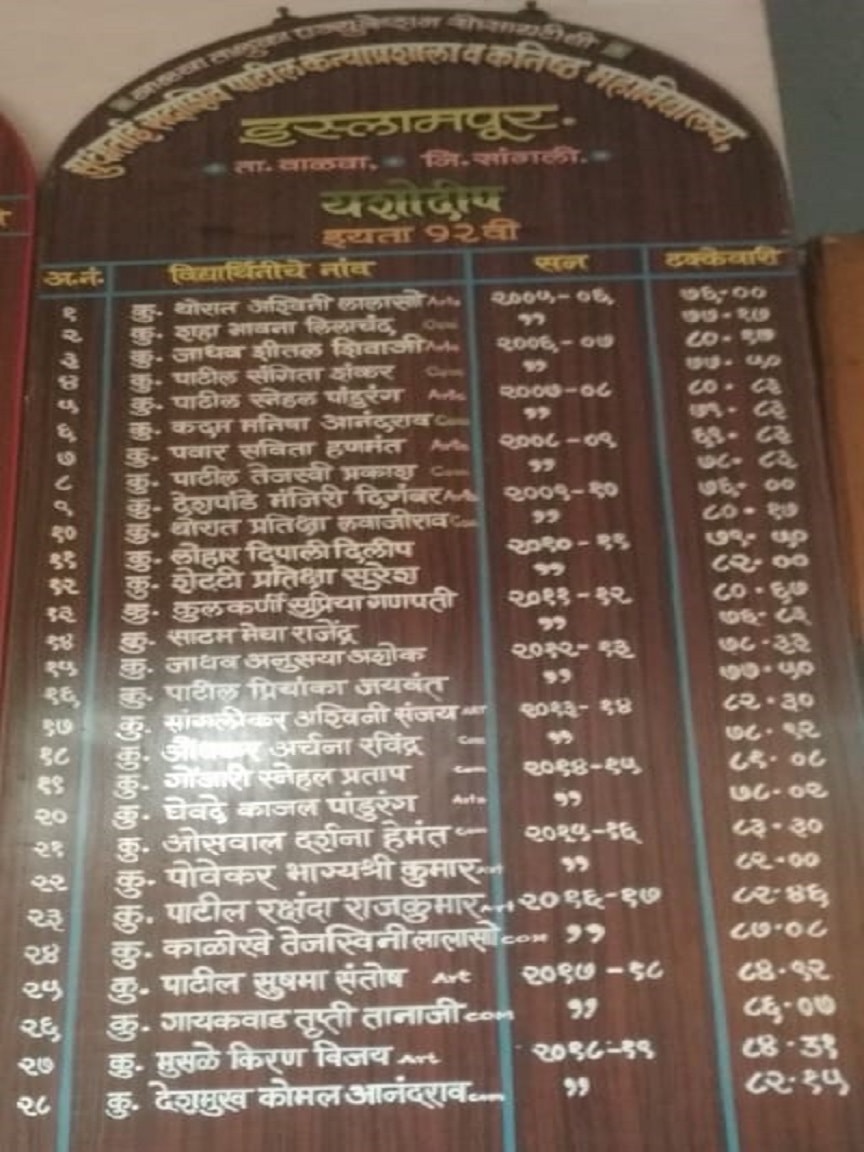 वाळवा तालुका एज्युकेशन सोसायटीची
पाटील कन्याप्रशाला व कनिष्ठ महाविद्यालय,
इस्लामपूर.
ता. वाळवा, जि. सांगली.
यशोदीप
इयत्ता १२ वी
अ.नं. विद्यार्थिनीचे नांव सन टक्केवारी
१ कु. थोरात अश्विनी लालासो Arts २००५-०६ ७६.००
२ कु. शहा भावना लिलाचंद Com ,, ७७.१७
३ कु. जाधव शीतल शिवाजी Arts २००६-०७ ८०.१७
४ कु. पाटील संगिता शंकर Com ,, ७७.५०
५ कु. पाटील स्नेहल पांडुरंग Arts २००७-०८ ८०.८३
६ कु. कदम मनिषा आनंदराव Com ,, ७१.८३
७ कु. पवार सविता हणमंत Arts २००८-०९ ६९.८३
८ कु. पाटील तेजस्वी प्रकाश Com ,, ७८.८३
९ कु. देशपांडे मंजिरी दिगंबर Arts २००९-१० ७६.००
१० कु. थोरात प्रतिक्षा लवाजीराव Com ,, ८०.१७
११ कु. लोहार दिपाली दिलीप २०१०-११ ७९.५०
१२ कु. शेट्टी प्रतिक्षा सुरेश ,, ८२.००
१३ कु. कुलकर्णी सुप्रिया गणपती २०११-१२ ८०.६७
१४ कु. साटम मेघा राजेंद्र ,, ७६.८३
१५ कु. जाधव अनुसया अशोक २०१२-१३ ७८.३३
१६ कु. पाटील प्रियांका जयवंत ,, ७७.५०
१७ कु. सांगलीकर अश्विनी संजय ART २०१३-१४ ८२.३०
१८ कु. अर्चना रविंद्र Com ,, ७८.१२
१९ कु. गोंजारी स्नेहल प्रताप Com २०१४-१५ ८९.०८
२० कु. घेवदे काजल पांडुरंग Arts ,, ७८.०२
२१ कु. ओसवाल दर्शना हेमंत com २०१५-१६ ८३.३०
२२ कु. पोवेकर भाग्यश्री कुमार Art ,, ८२.००
२३ कु. पाटील रक्षंदा राजकुमार Art २०१६-१७ ८२.४६
२४ कु. काळोखे तेजस्विनी लालासो com ,, ८७.०८
२५ कु. पाटील सुषमा संतोष Art २०१७-१८ ८४.९२
२६ कु. गायकवाड तृप्ती तानाजी com ,, ८६.०७
२७ कु. मुसळे किरण विजय Art २०१८-१९ ८४.३१
२८ कु. देशमुख कोमल आनंदराव com ,, ८२.१५